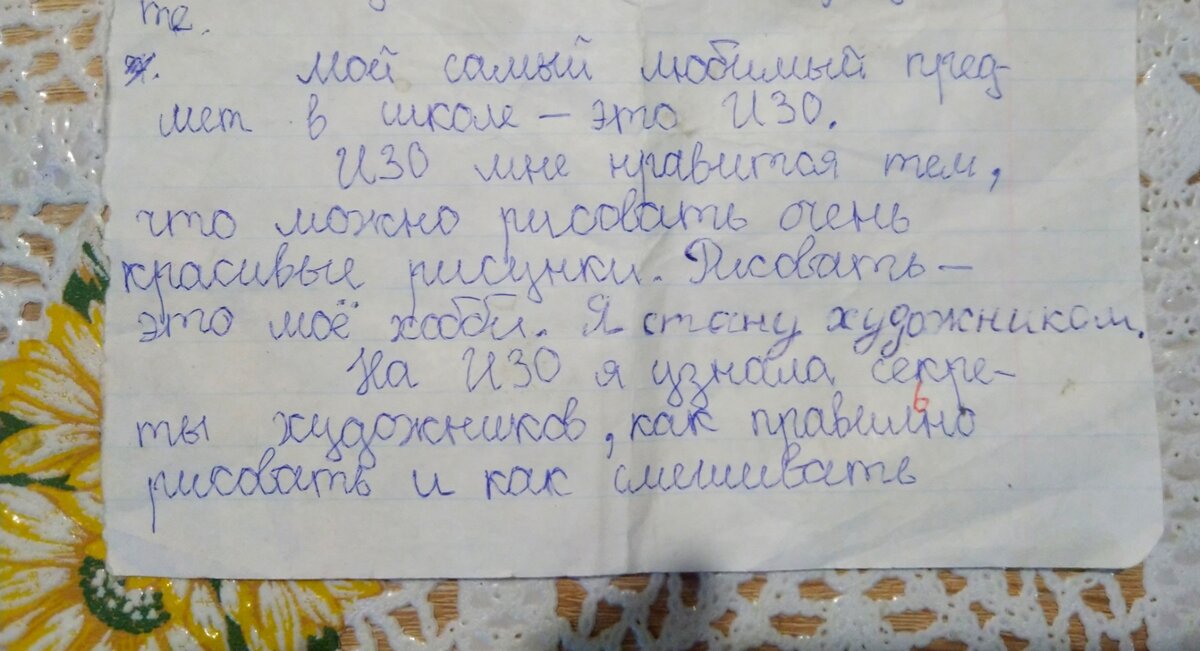 те.
Мой самый любимый пред-
мет в школе – это ИЗО.
ИЗО мне нравится тем,
что можно рисовать очень
красивые рисунки. Рисовать –
это моё хобби. Я стану художником.
На ИЗО я узнала секре-
ты художников, как правильно
рисовать и как смешивать